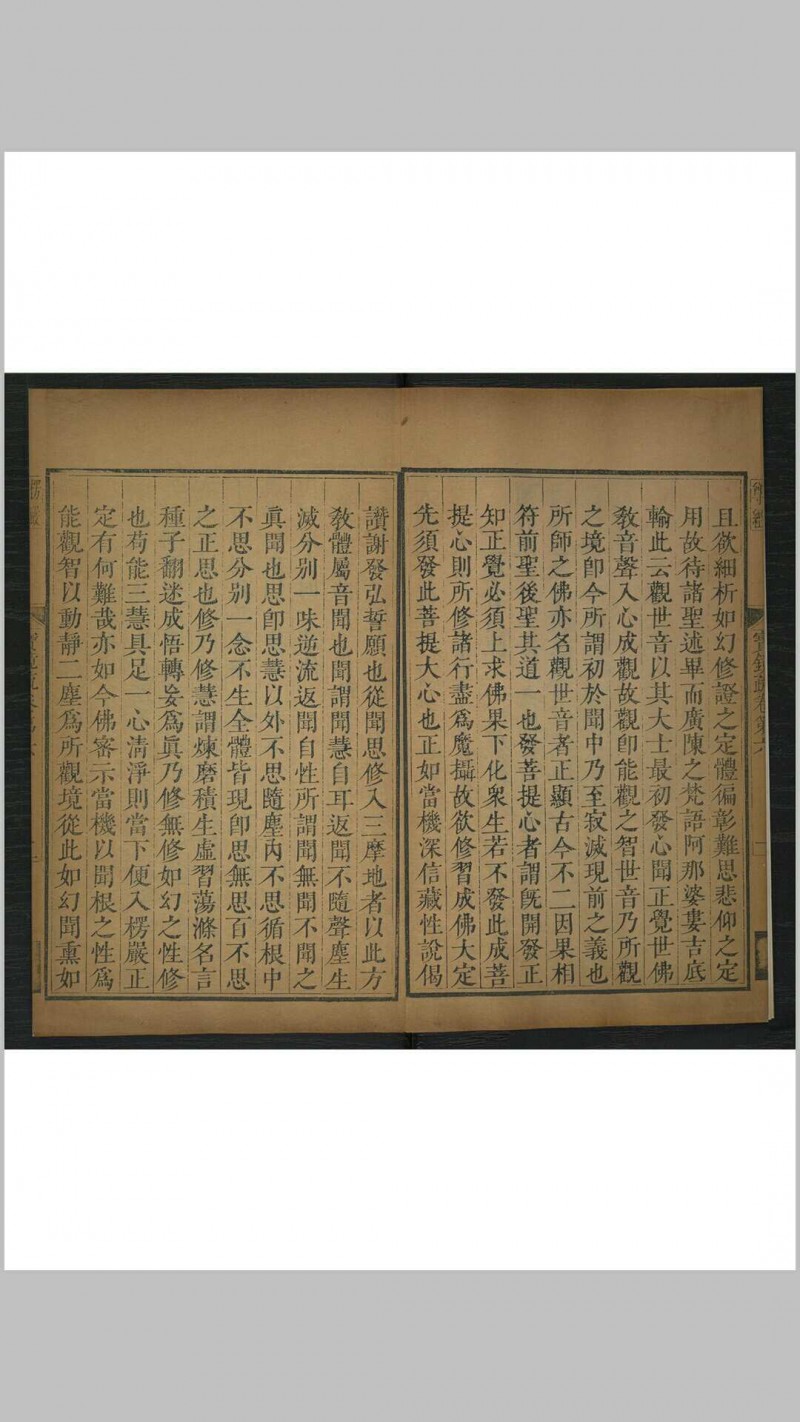 且欲細析如幻修證之定體徧彰難思悲仰之定
用故待諸聖述畢而廣陳之梵語阿那婆婁吉底
輸此云觀世音以其大士最初發心聞正覺世佛
敎音聲入心成觀故觀即能觀之智世音乃所觀
之境即今所謂初於聞中乃至寂滅現前之義也
所師之佛亦名觀世音者正顯古今不二因果相
符前聖後聖其道一也發菩提心者謂旣開發正
知正覺必須上求佛果下化衆生若不發此成菩
提心則所修諸行盡爲魔攝故欲修習成佛大定
先須發此菩提大心也正如當機深信藏性說偈
讚謝發弘誓願也從聞思修入三摩地者以此方
敎體屬音聞也聞謂聞慧自耳返聞不隨聲塵生
滅分别一味逆流返聞自性所謂聞無聞不聞之
眞聞也思即思慧以外不思隨塵內不思循根中
不思分别一念不生全體皆現即思無思百不思
之正思也修乃修慧謂煉磨積生虛習蕩滌名言
種子翻迷成悟轉妄爲眞乃修無修如幻之性修
也苟能三慧具足一心清淨則當下便入楞嚴正
定有何難哉亦如今佛審示當機以聞根之性爲
能觀智以動靜二塵爲所觀境從此如幻聞熏如